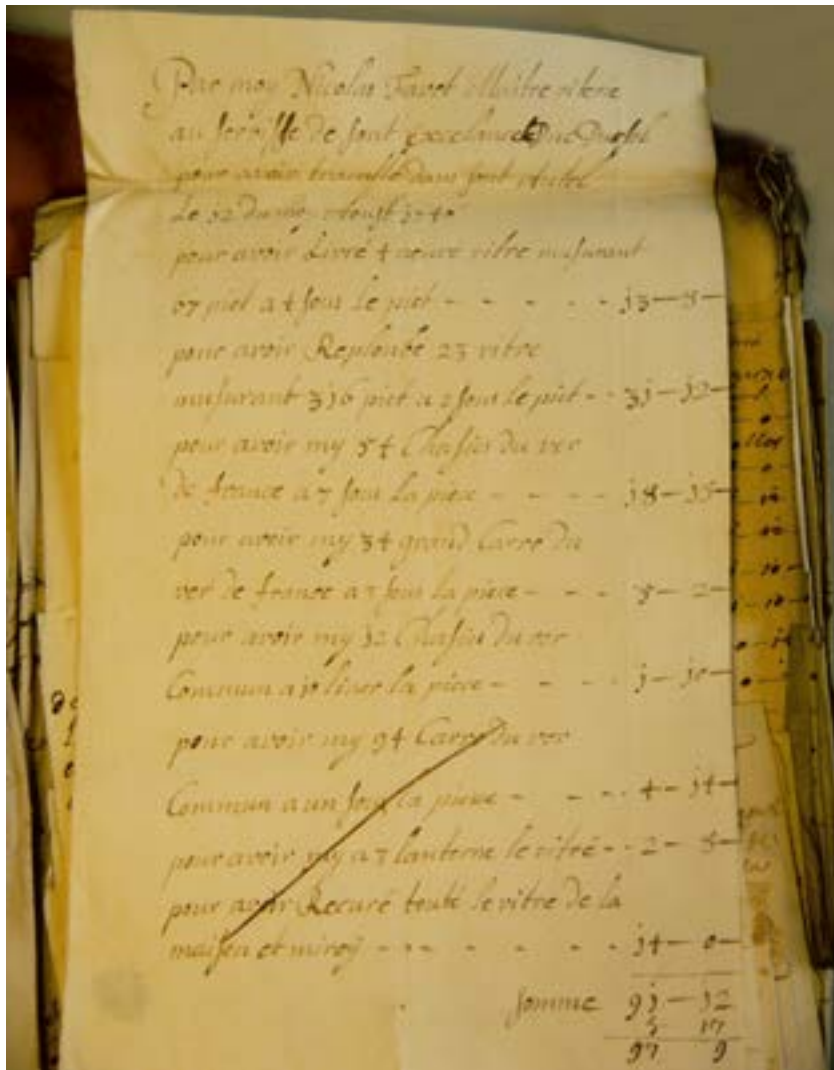 Par moy Nicolas Favet Maitre vitrie
au servisse de sont excelance Duc Dursel
pour avoir travaillé dans sont Autel
Le 12 du moy Aoust
pour avoir Livré 4 neuve vitre mesurant
67 piet a 4 sous le piet - - - - - j3—8—
pour avoir Replonbé 23 vitre
mesurant 3j6 piet a 2 sous le piet - - 3j—j2—
pour avoir my 54 Chasiss du ver
de france a 7 sous La piece - - - - j8—j8—
pour avoir my 34 grand Carre du
ver de france a 3 sous la piece - - - 5—2—
pour avoir my 32 Chasiss du ver
Commun a liar la piece - - - - j—j0—
pour avoir my 94 Carre du ver
Commun a un sous La piece - - - 4—j4—
pour avoir my a 7 lanterne le vitre - - 2—8—
pour avoir Recuré toute le vitre de la
maison et miroÿ - - - - - - j4—0—
somme 9j—j2
5 17
97 9